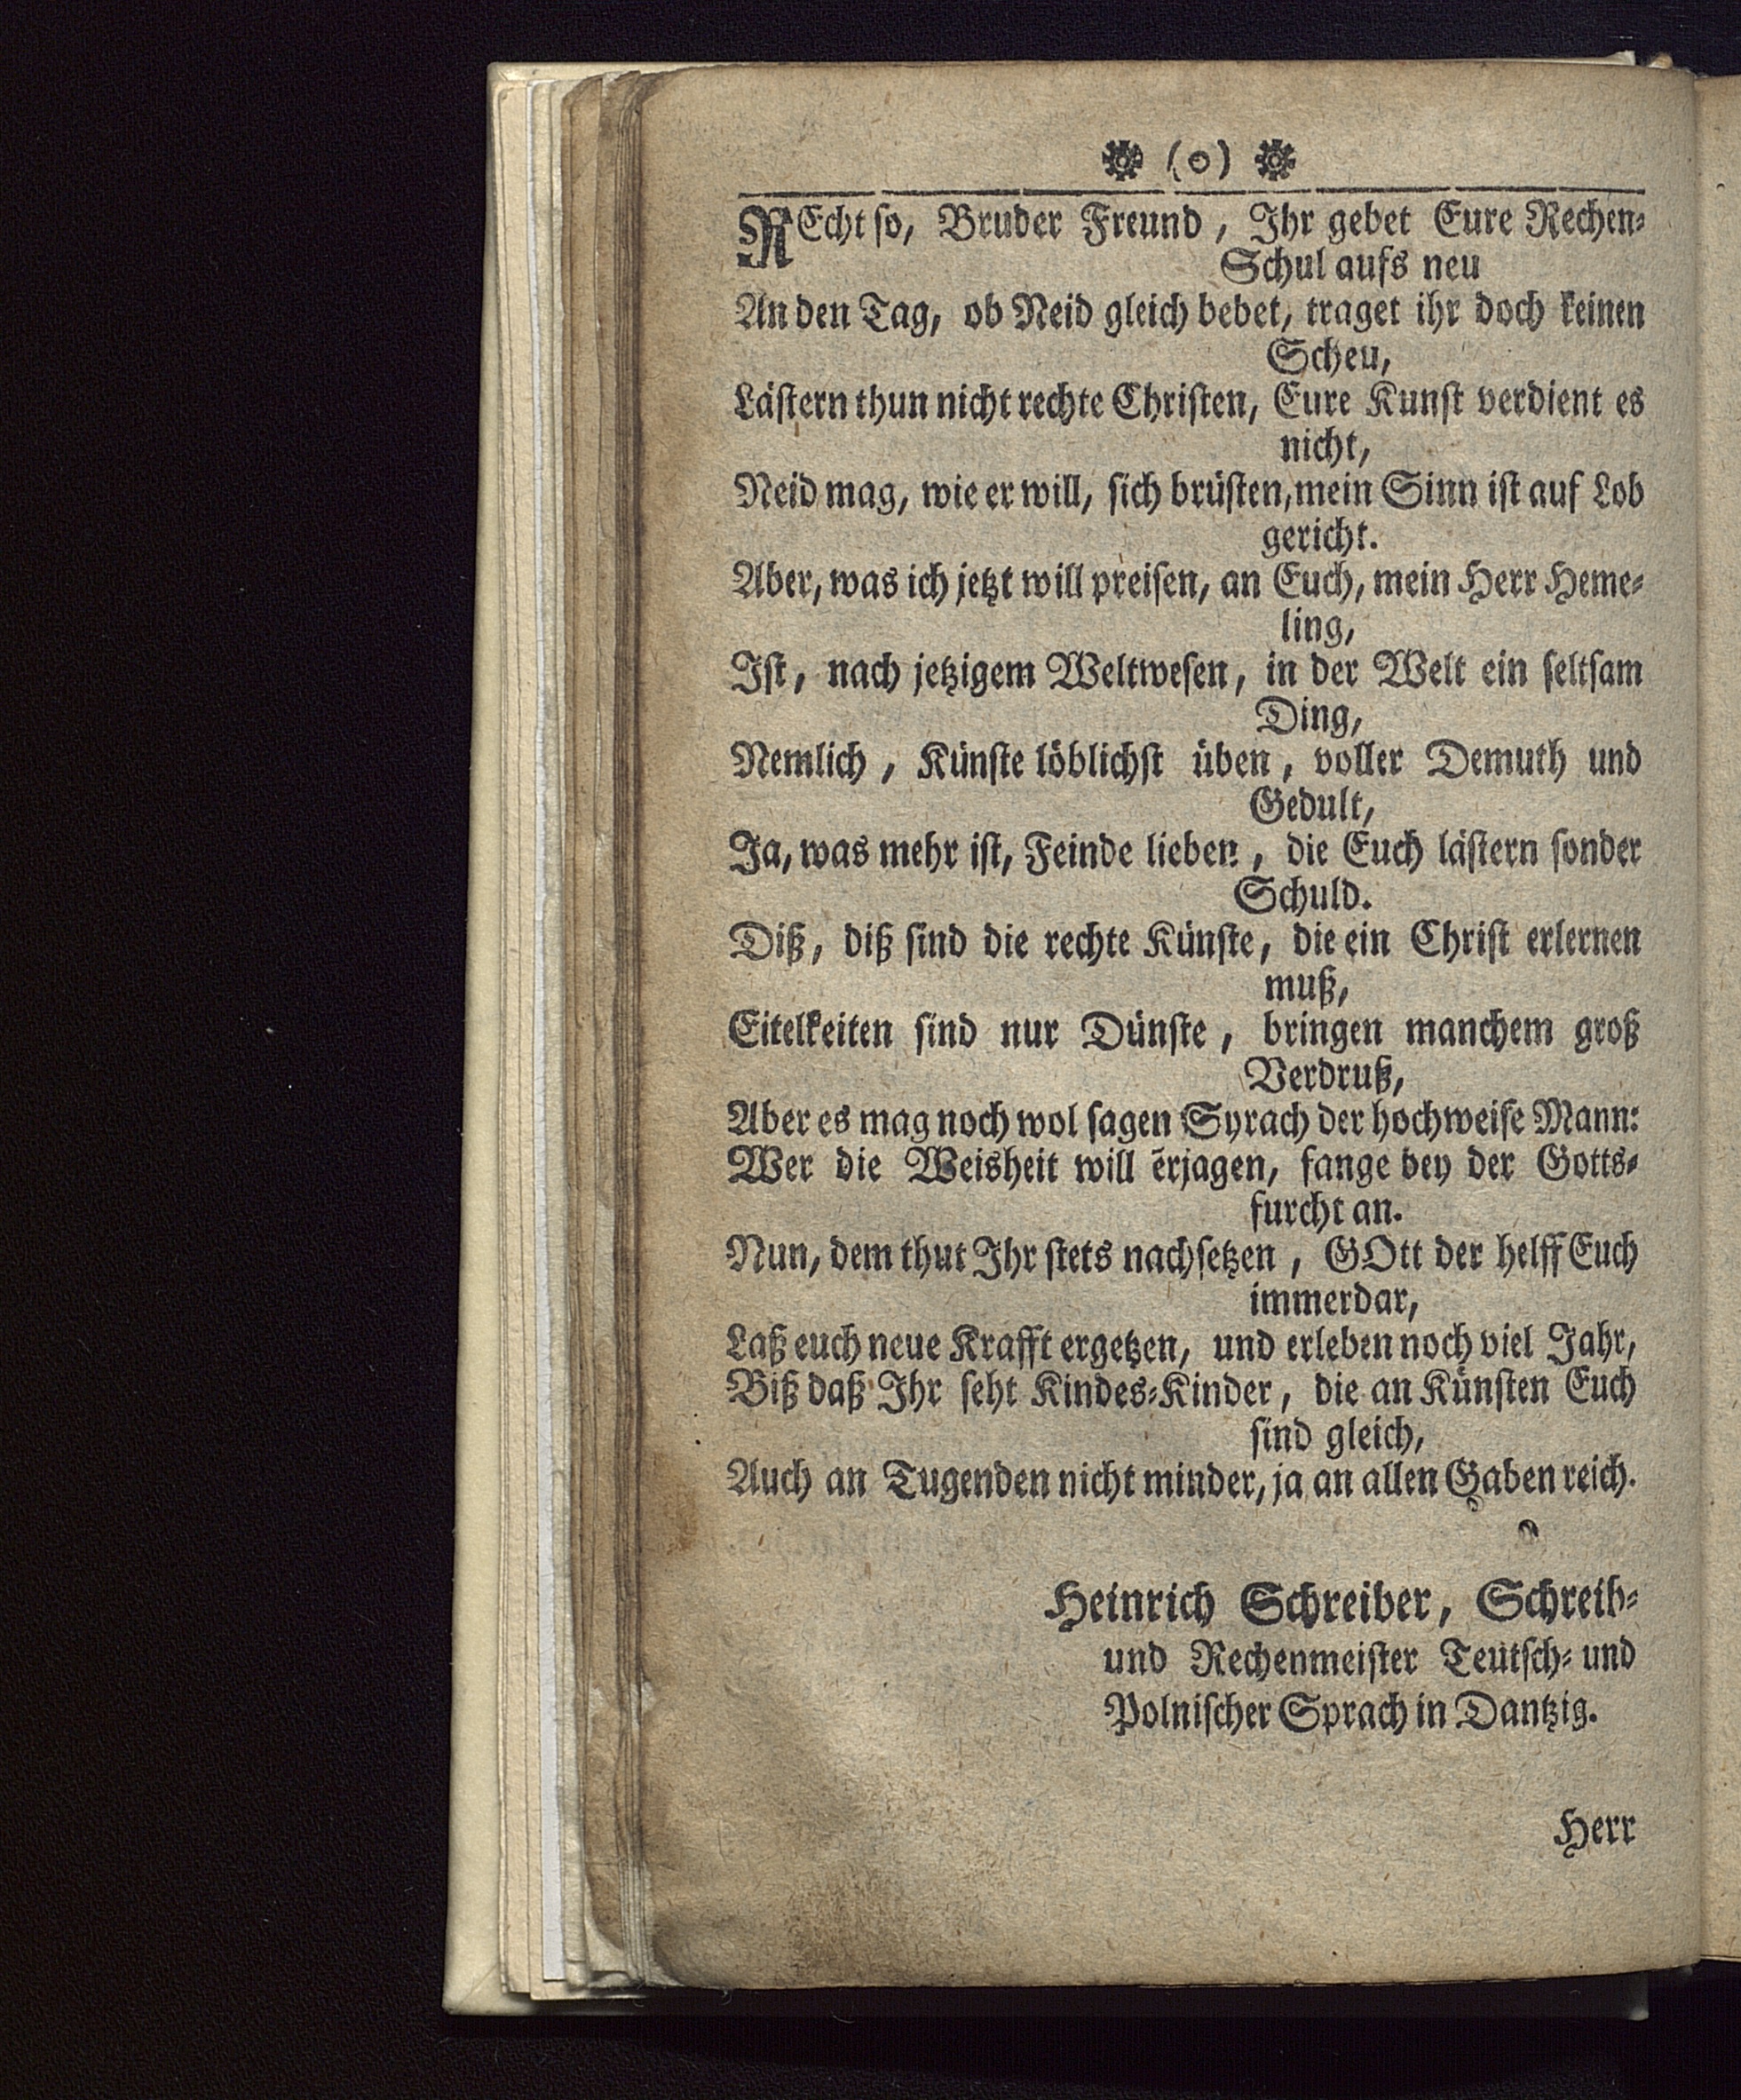 (o)
REcht so, Bruder Freund, Ihr gebet Eure Rechen-
Schul aufs neu
An den Tag, ob Neid gleich bebet, traget ihr doch keinen
Scheu,
Lästern thun nicht rechte Christen, Eure Kunst verdient es
nicht,
Neid mag, wie er will, sich brüsten, mein Sinn ist auf Lob
gericht.
Aber, was ich jetzt will preisen, an Euch, mein Herr Heme-
ling,
Ist, nach jetzigem Weltwesen, in der Welt ein seltsam
Ding,
Nemlich, Künste löblichst üben, voller Demuth und
Gedult,
Ja, was mehr ist, Feinde lieben, die Euch lästern sonder
Schuld.
Diß, diß sind die rechte Künste, die ein Christ erlernen
muß,
Eitelkeiten sind nur Dünste, bringen manchem groß
Verdruß,
Aber es mag noch wol sagen Syrach der hochweise Mann:
Wer die Weisheit will erjagen, fange bey der Gotts-
furcht an.
Nun, dem thut Ihr stets nachsetzen, GOtt der helff Euch
immerdar,
Laß euch neue Krafft ergetzen, und erleben noch viel Jahr,
Biß daß Ihr seht Kindes-Kinder, die an Künsten Euch
sind gleich,
Auch an Tugenden nicht minder, ja an allen Gaben reich.
Heinrich Schreiber, Schreib-
und Rechenmeister Teutsch- und
Polnischer Sprach in Dantzig.
Herr